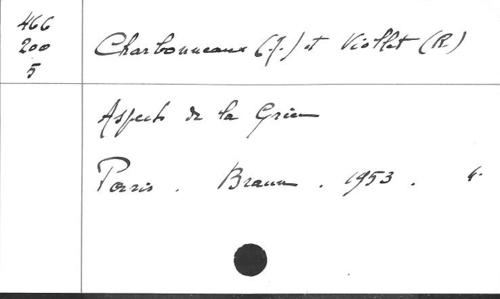 466
200
5
Charbonneaux (J.) et Viollet (R.)
Aspects de la Grèce
Paris . Braun . 1953 .